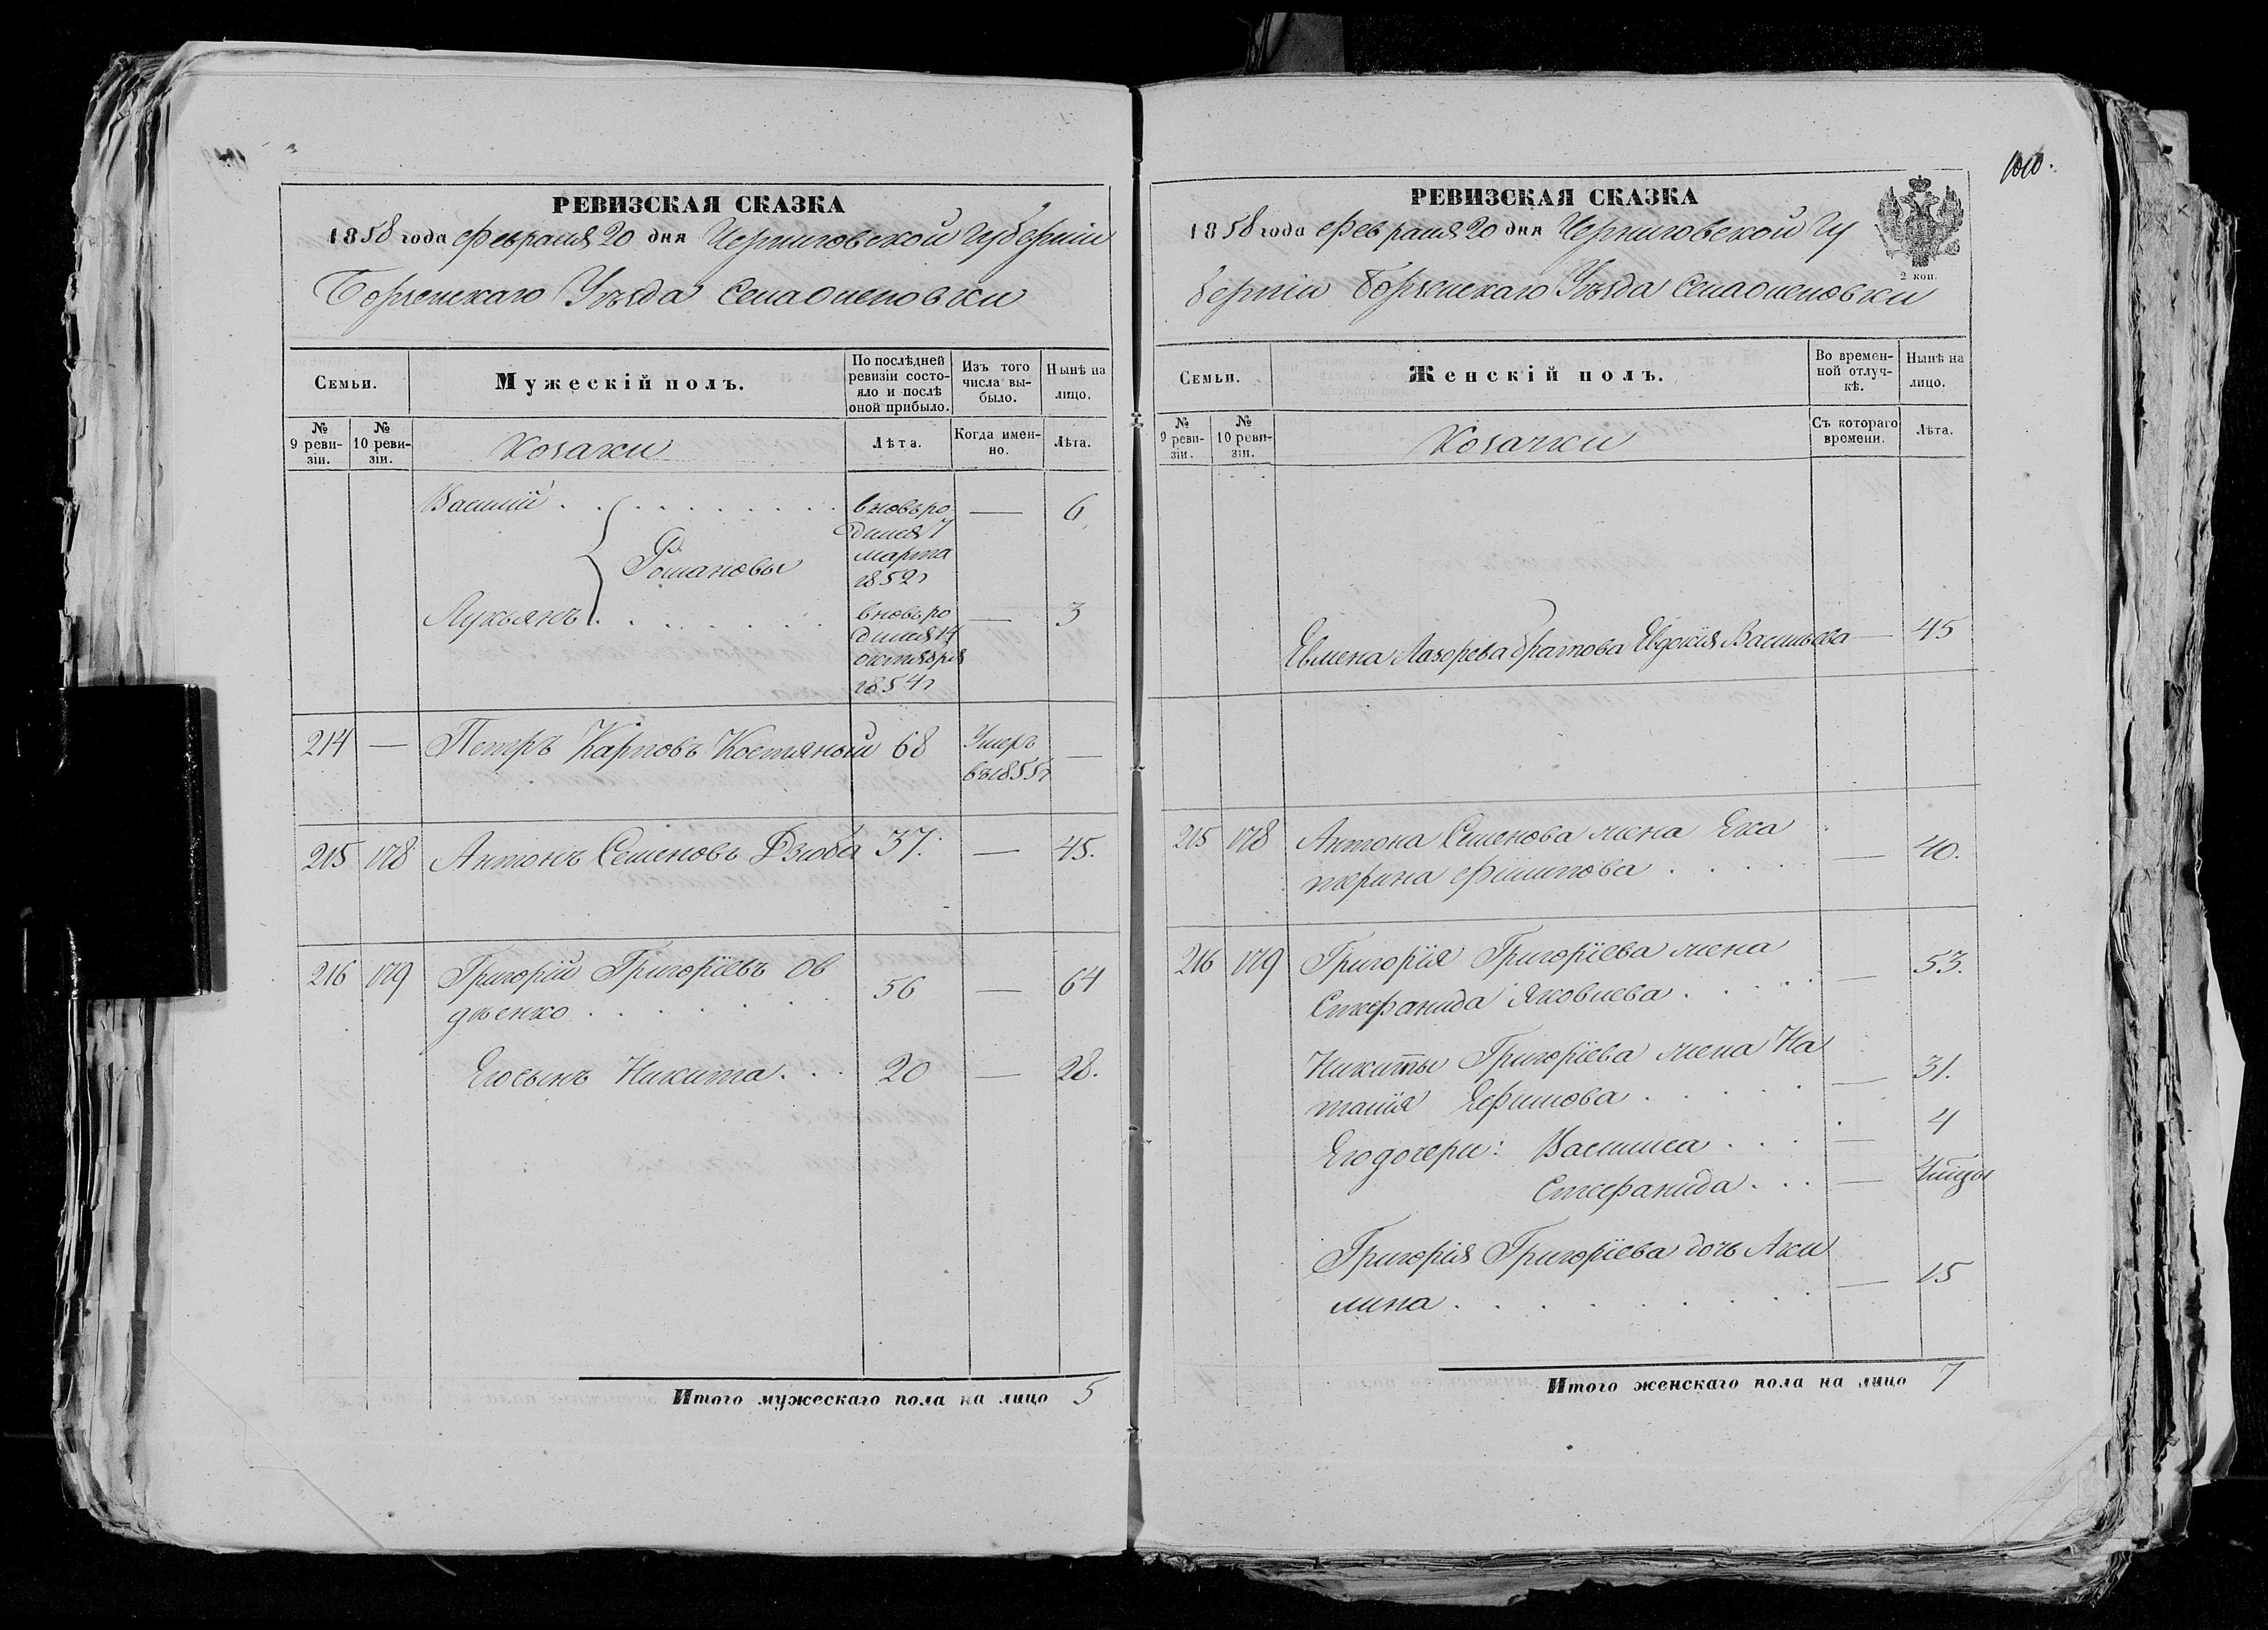 РЕВИЗСКАЯ СКАЗКА
1858 года Февраля 20 дня Черниговской Губерніи
Борзенскаго Уѣзда Села Оленовки
Семьи.
Мужескій полъ.
По послѣдней ревизіи состояло и послѣ оной прибыло.
Изъ того числа выбыло.
Нынѣ на лицо.
№ 9 ревизіи.
№ 10 ревизіи.
Козаки
Лѣта.
Когда именно.
Лѣта.
Василій . . . . . . . . . вновь ро — 6
дился 7
Романовы марта
1852 г
Лукьянъ . . . . . . . вновь ро — 3
дился 14
октября
1854 г
214 — Петръ Карповъ Костяный 68 Умеръ —
въ 1855 г
215 178 Антонъ Семеновъ Дзюба 37. — 45.
216 179 Григорій Григоріевъ Ов
дѣенко . . . . 56 — 64
Его сынъ Никита . . . 20 — 28.
Итого мужескаго пола на лицо 5
1010.
РЕВИЗСКАЯ СКАЗКА
1858 года Февраля 20 дня Черниговской Гу
2 коп.
берніи Борзенскаго Уѣзда Села Оленовки
Семьи.
Женскій полъ.
Во временной отлучкѣ.
Нынѣ на лицо.
№ 9 ревизіи.
№ 10 ревизіи.
Козачки
Съ котораго времени.
Лѣта.
Евмена Лазорева братова Евдокія Васильева — 45
215 178 Антона Семенова жена Ека
терина Филипова . . . . — 40.
216 179 Григорія Григоріева жена
Стефанида Яковлева . . . . . — 53.
Никиты Григоріева жена На
талія Ефимова . . . . . — 31.
Его дочери: Василиса . . . — 4
Стефанида . . . —
Григорія Григоріева дочь Аки
лина . . . . . . . . . — 15
Итого женскаго пола на лицо 7